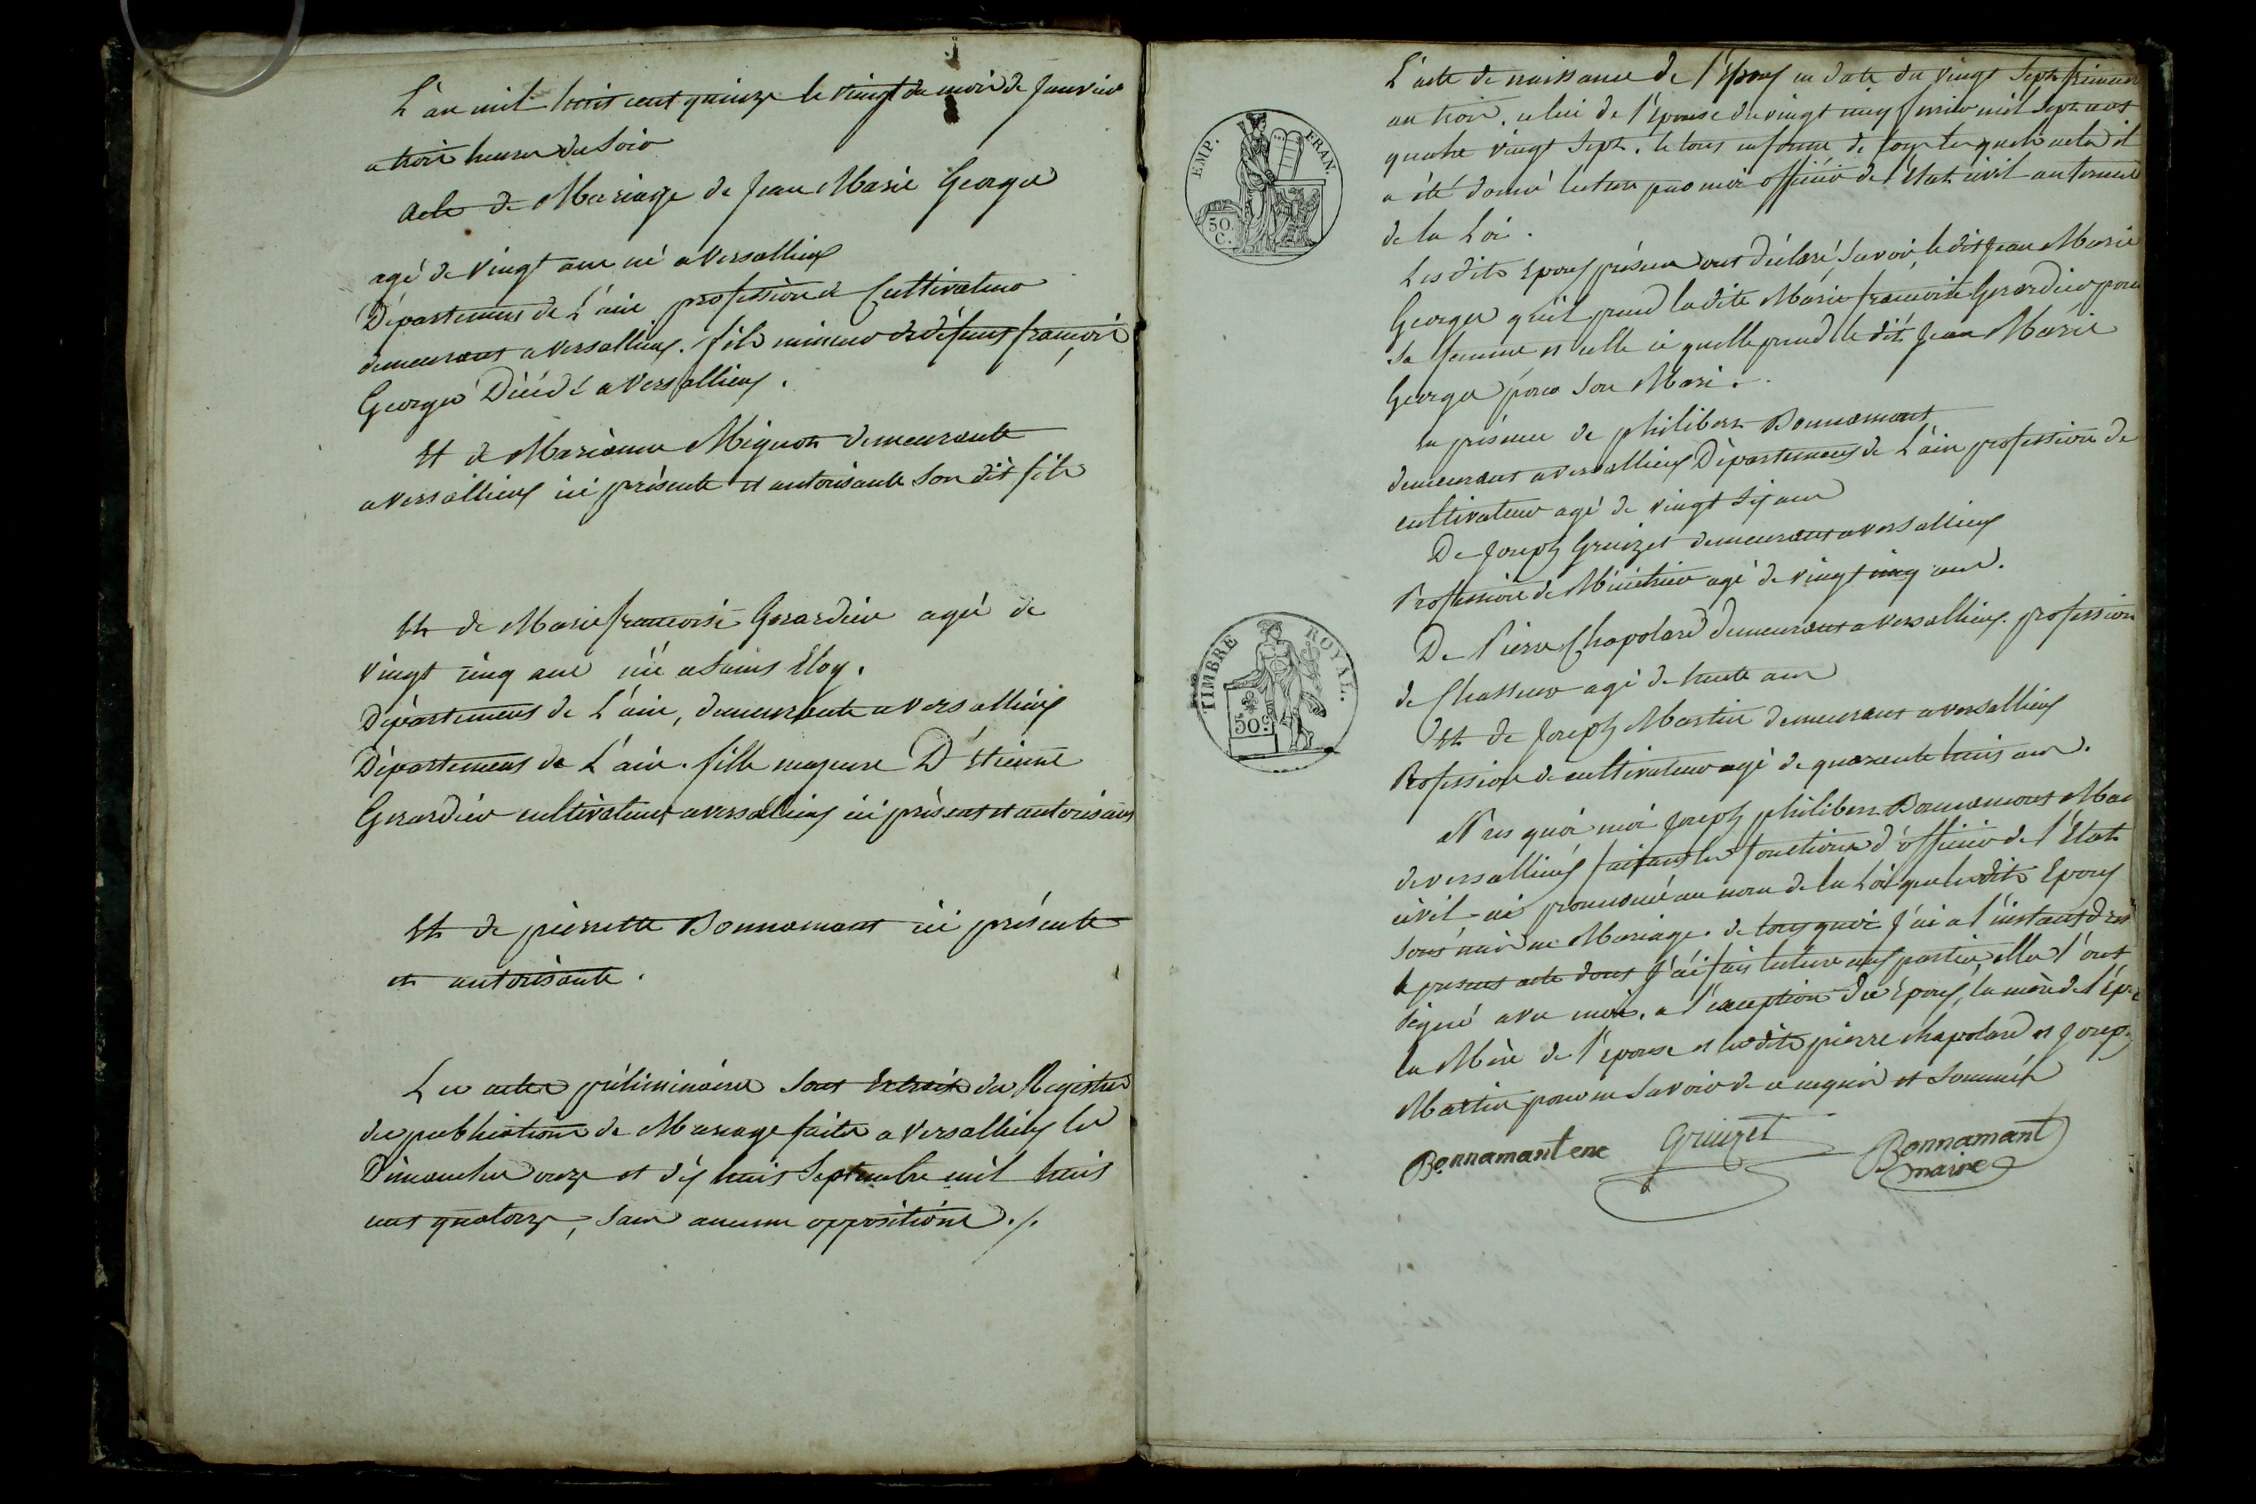 L'an mil huit cent quinze le vingt du mois de Janvier
a trois heures du soir
acte de Mariage de Jean Marie Georges
agé de vingt ans né a Versallieux
Département de L'ain profession de Cultivateur
demeurant a versallieux. fils mineur de défunt françois
Georges Décédé a Versallieux.
Et de Marianne Mignot demeurante
a versallieux ici présente et autorisante son dit fils
Et de Marie françoise Gerardier agée de
vingt cinq ans née a Saint Eloy.
Département de L'ain, demeurante a versallieux
Département de L'ain. fille majeure D'étienne
Gerardier cultivateur a versallieux ici présent et autorisant
Et de pierrette Bonnamant ici présente
et autorisante.
Les actes préliminaires sont Extraits des Registres
des publications de Mariage faites a Versallieux les
Dimanches onze et dix huit Septembre mil huit
cent quatorze, sans aucune opposition ./.
L'acte de naissance de l'Epoux en date du vingt sept frimaire
an trois. celui de l'épouse du vingt cinq fevrier mil sept cent
quatre vingt sept. le tout en forme de tous lesquels actes il
a été donné lecture par moi officier de l'état civil aux termes
de la Loi.
Les dits Epoux présens ont déclaré savoir le dit Jean Marie
Georges qu'il prend la dite Marie françoise Gerardier pour
sa femme et celle ci quelle prend le dit Jean Marie
Georges pour son Mari.
en présence de philibert Bonnamant
demeurant a versallieux Département de L'ain profession de
cultivateur agé de vingt six ans
De Joseph Gruizet demeurant a versallieux
Profession de Ménétrier agé de vingt cinq ans.
De Pierre Chapolard demeurant a versallieux. profession
de Chasseur agé de trente ans
Et de Joseph Martin demeurant a versallieux
Profession de cultivateur agé de quarante huit ans.
Après quoi moi Joseph philibert Bonnamant Mai
de versallieux faisant les fonctions d'officier de l'Etat
civil ai prononcé au nom de la Loi que les dits Epoux
sont unis en Mariage. de tout quoi j'ai a l'instant dres
le présent acte dont j'ai fait lecture aux parties, elles l'ont
signé avec moi. a l'exception des époux, la mère de l'époux
la Mère de l'épouse et les dits pierre chapolard et Joseph
Martin pour ne savoir de ce enquis et sommés
Bonnamant ene Gruizet Bonnamant
maire
EMP. FRAN.
50.
C.
TIMBRE ROYAL.
50 c.